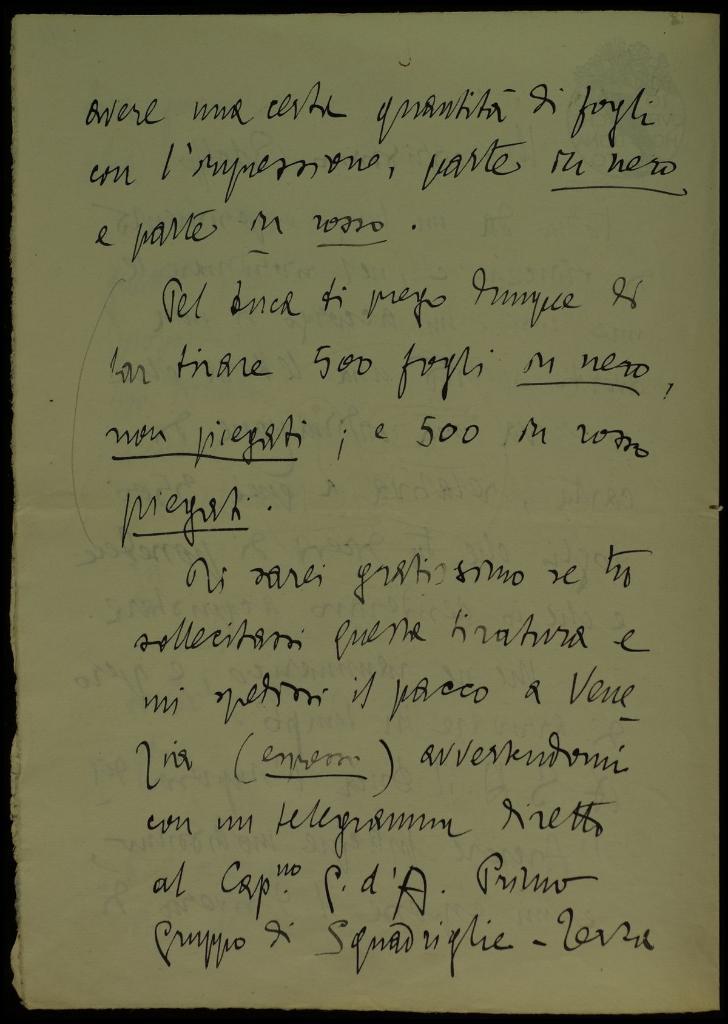 avere una certa quantità di fogli
con l'impressione, parte in nero
e parte in rosso.
Pel Duca ti prego dunque di
far tirare 500 fogli in nero,
non piegati; e 500 in rosso
piegati.
Ti sarei gratissimo se tu
sollecitassi questa tiratura e
mi spedissi il pacco a Vene
zia (espresso) avvertendomi
con un telegramma diretto
al Cap.no G. d'A. Primo
Gruppo di Squadriglie - Terza